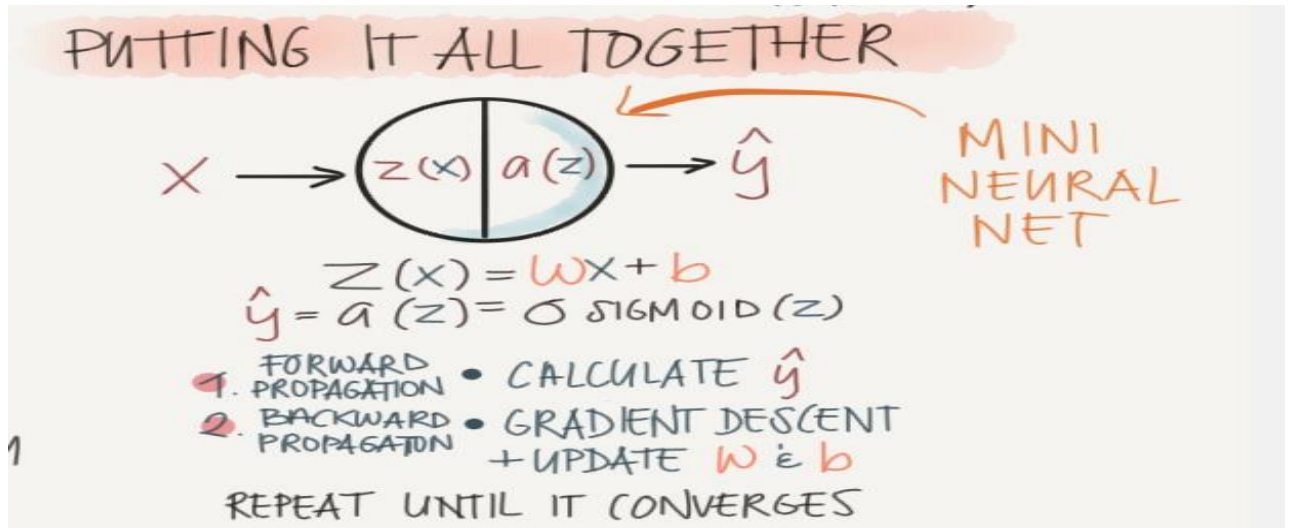 PUTTING IT ALL TOGETHER
X → z(x) | a(z) → ŷ
MINI
NEURAL
NET
Z(x) = wx + b
ŷ = a(z) = σ SIGMOID(z)
1. FORWARD PROPAGATION • CALCULATE ŷ
2. BACKWARD PROPAGATON • GRADIENT DESCENT
+ UPDATE w & b
REPEAT UNTIL IT CONVERGES